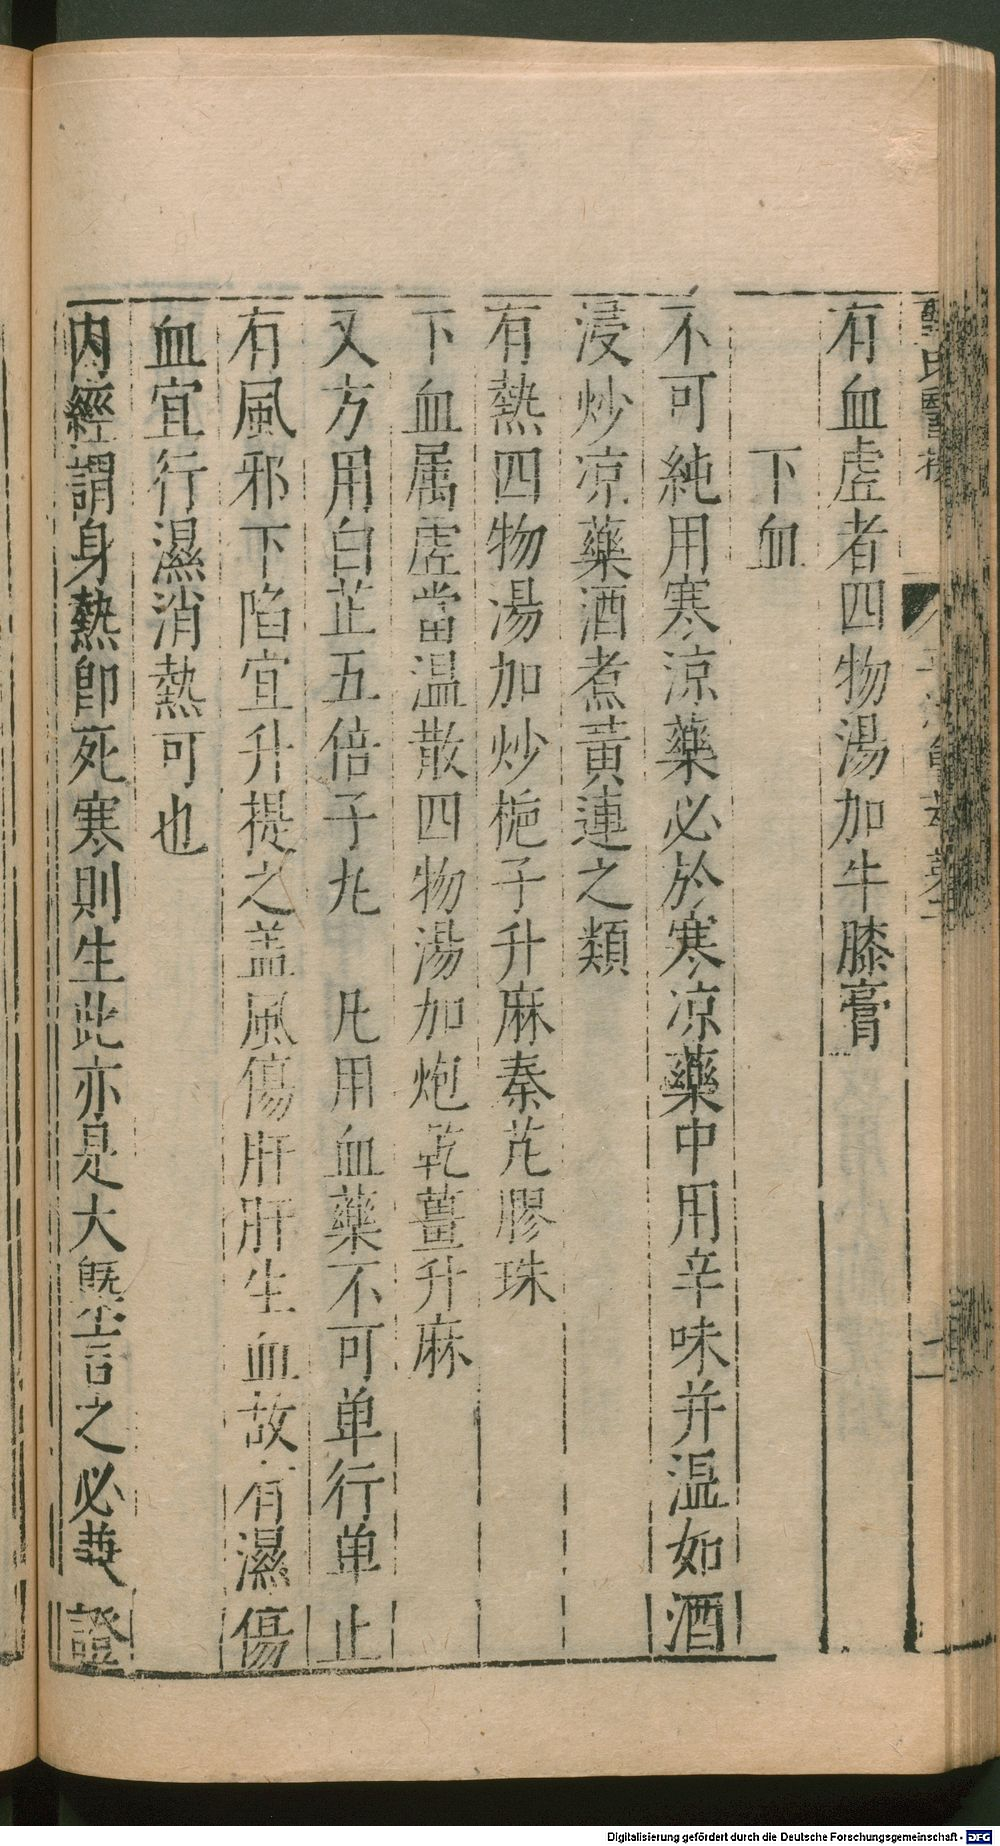 有血虗者四物湯加牛膝膏
下血
不可純用寒凉藥必於寒凉藥中用辛味并温如酒
浸炒凉藥酒煮黃連之類
有熱四物湯加炒梔子升麻秦艽膠珠
下血属虗當温散四物湯加炮乾薑升麻
又方用白芷五倍子丸　凡用血藥不可单行单止
有風邪下陷宜升提之盖風傷肝肝生血故有濕傷
血宜行濕消熱可也
内經謂身熱卽死寒則生此亦是大槩言之必兼證
Digitalisierung gefördert durch die Deutsche Forschungsgemeinschaft - DFG